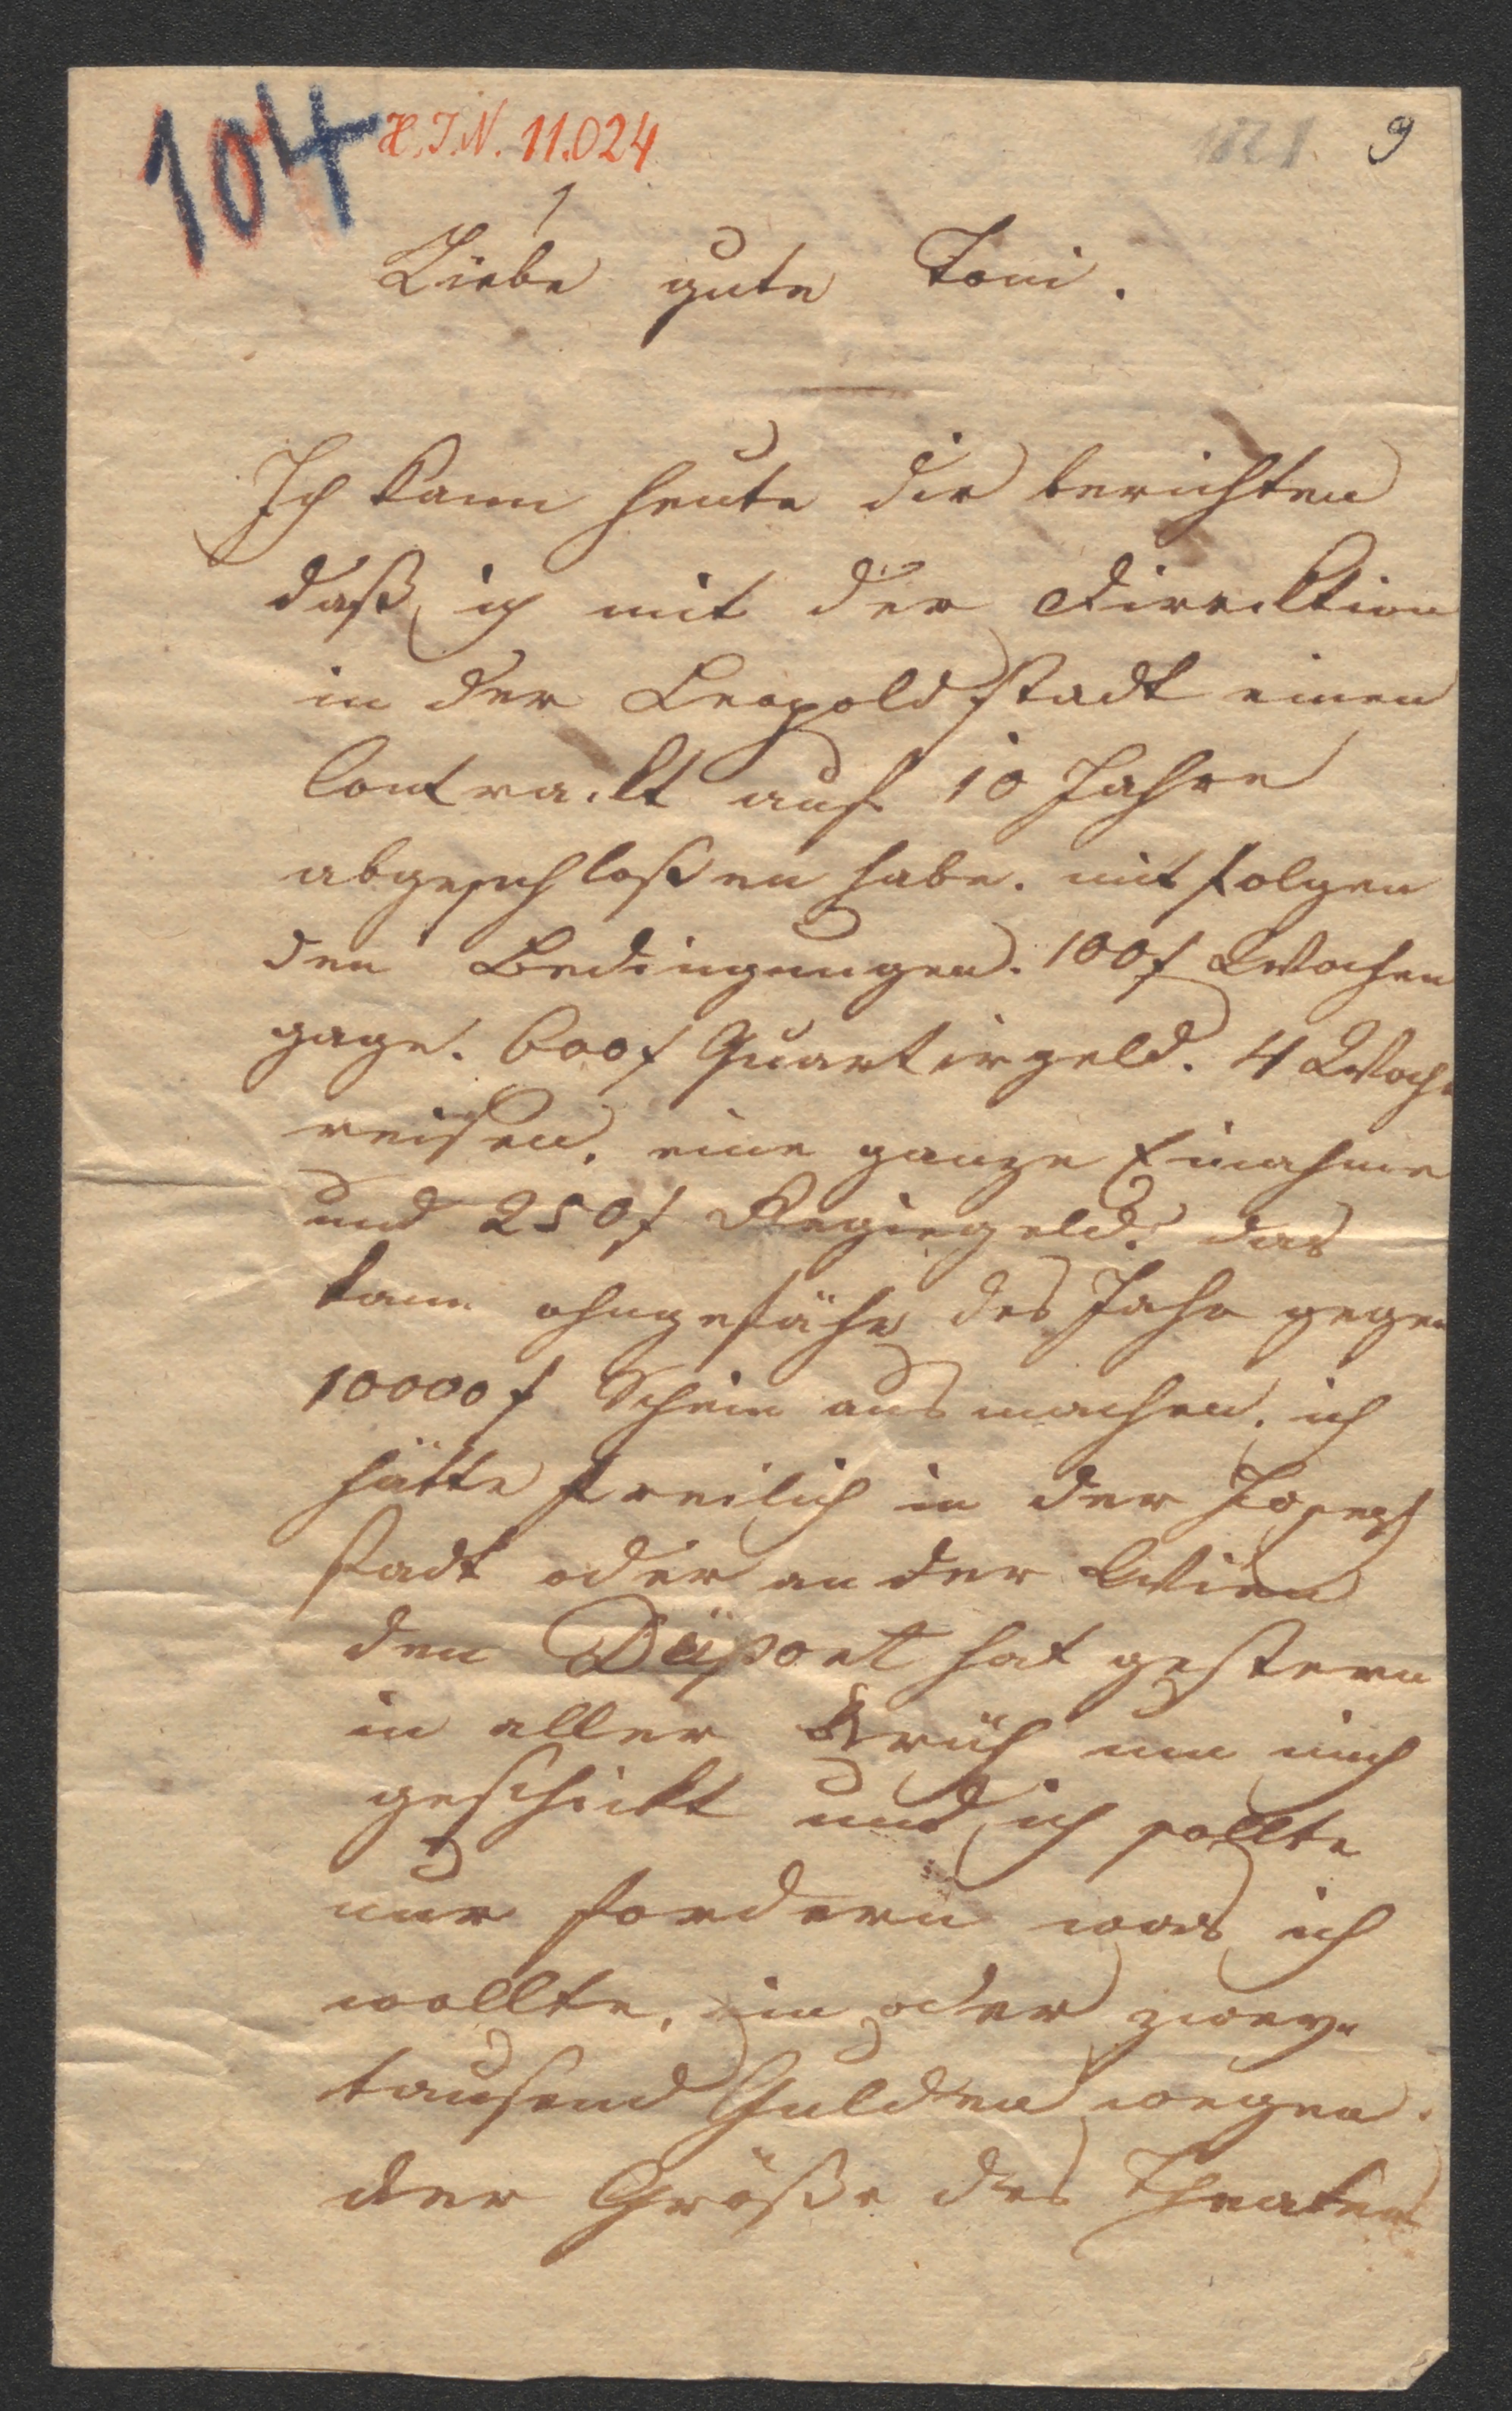 104 H.I.N. 11.024 1821. 9
1
Liebe gute Toni.
Ich kann heute dir berichten
daß ich mit der Direcktion
in der Leopoldstadt einen
Contrackt auf 10 Jahre
abgeschloßen habe. mit folgen
den Bedingungen. 100f Wochen
gage. 600f Quartirgeld. 4 Woch
reisen, eine ganze Einahme
und 250f Regiegeld. das
kann ohngefähr des Jahr gegen
10000f Schein aus machen. ich
hätte freilich in der Joseph
stadt oder an der Wien
den Düport hat gestern
in aller Früh um mich
geschickt und ich sollte
nur fordern was ich
wollte, ein oder zwey
tausend Gulden wegen.
der Größe des Theaters